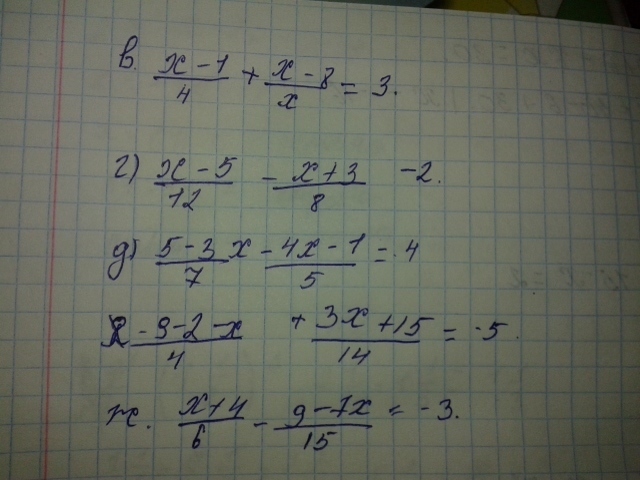 в. (x - 1)/4 + (x - 8)/x = 3.
г) (x - 5)/12 - (x + 3)/8 -2.
д) (5 - 3x)/7 - (4x - 1)/5 = 4
(- 9 - 2 - x)/4 + (3x + 15)/14 = -5.
ж. (x + 4)/6 - (9 - 7x)/15 = -3.